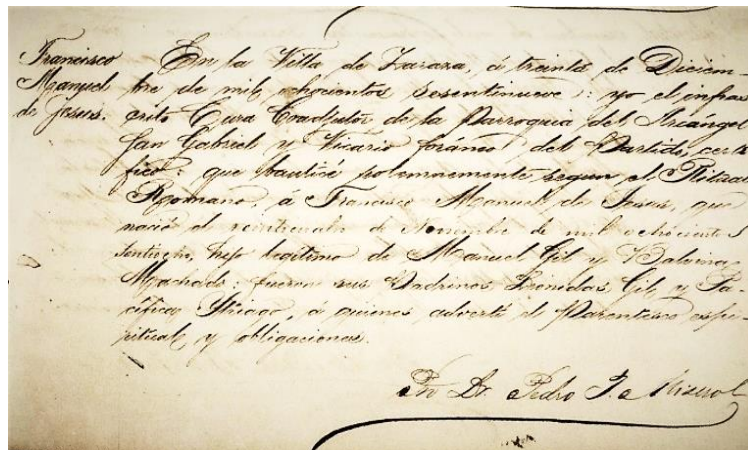 Francisco
Manuel
de Jesus.
En la Villa de Zaraza, á treinta de Diciem-
bre de mil ochocientos sesentinueve: yo el infras
crito Cura Coadjutor de la Parroquia del Arcángel
San Gabriel y Vicario foráneo del Partido, certi
fico: que bauticé solemnemente segun el Ritual
Romano, á Francisco Manuel de Jesus, que
nació el de Noviembre de mil ochocientos
hijo legítimo de Manuel Gil y Balvina
Machado: fueron sus Padrinos Leonidas Gil y Pa-
cífica á quienes advertí el Parentesco espi-
ritual y obligaciones.
Pbro Dr. Pedro